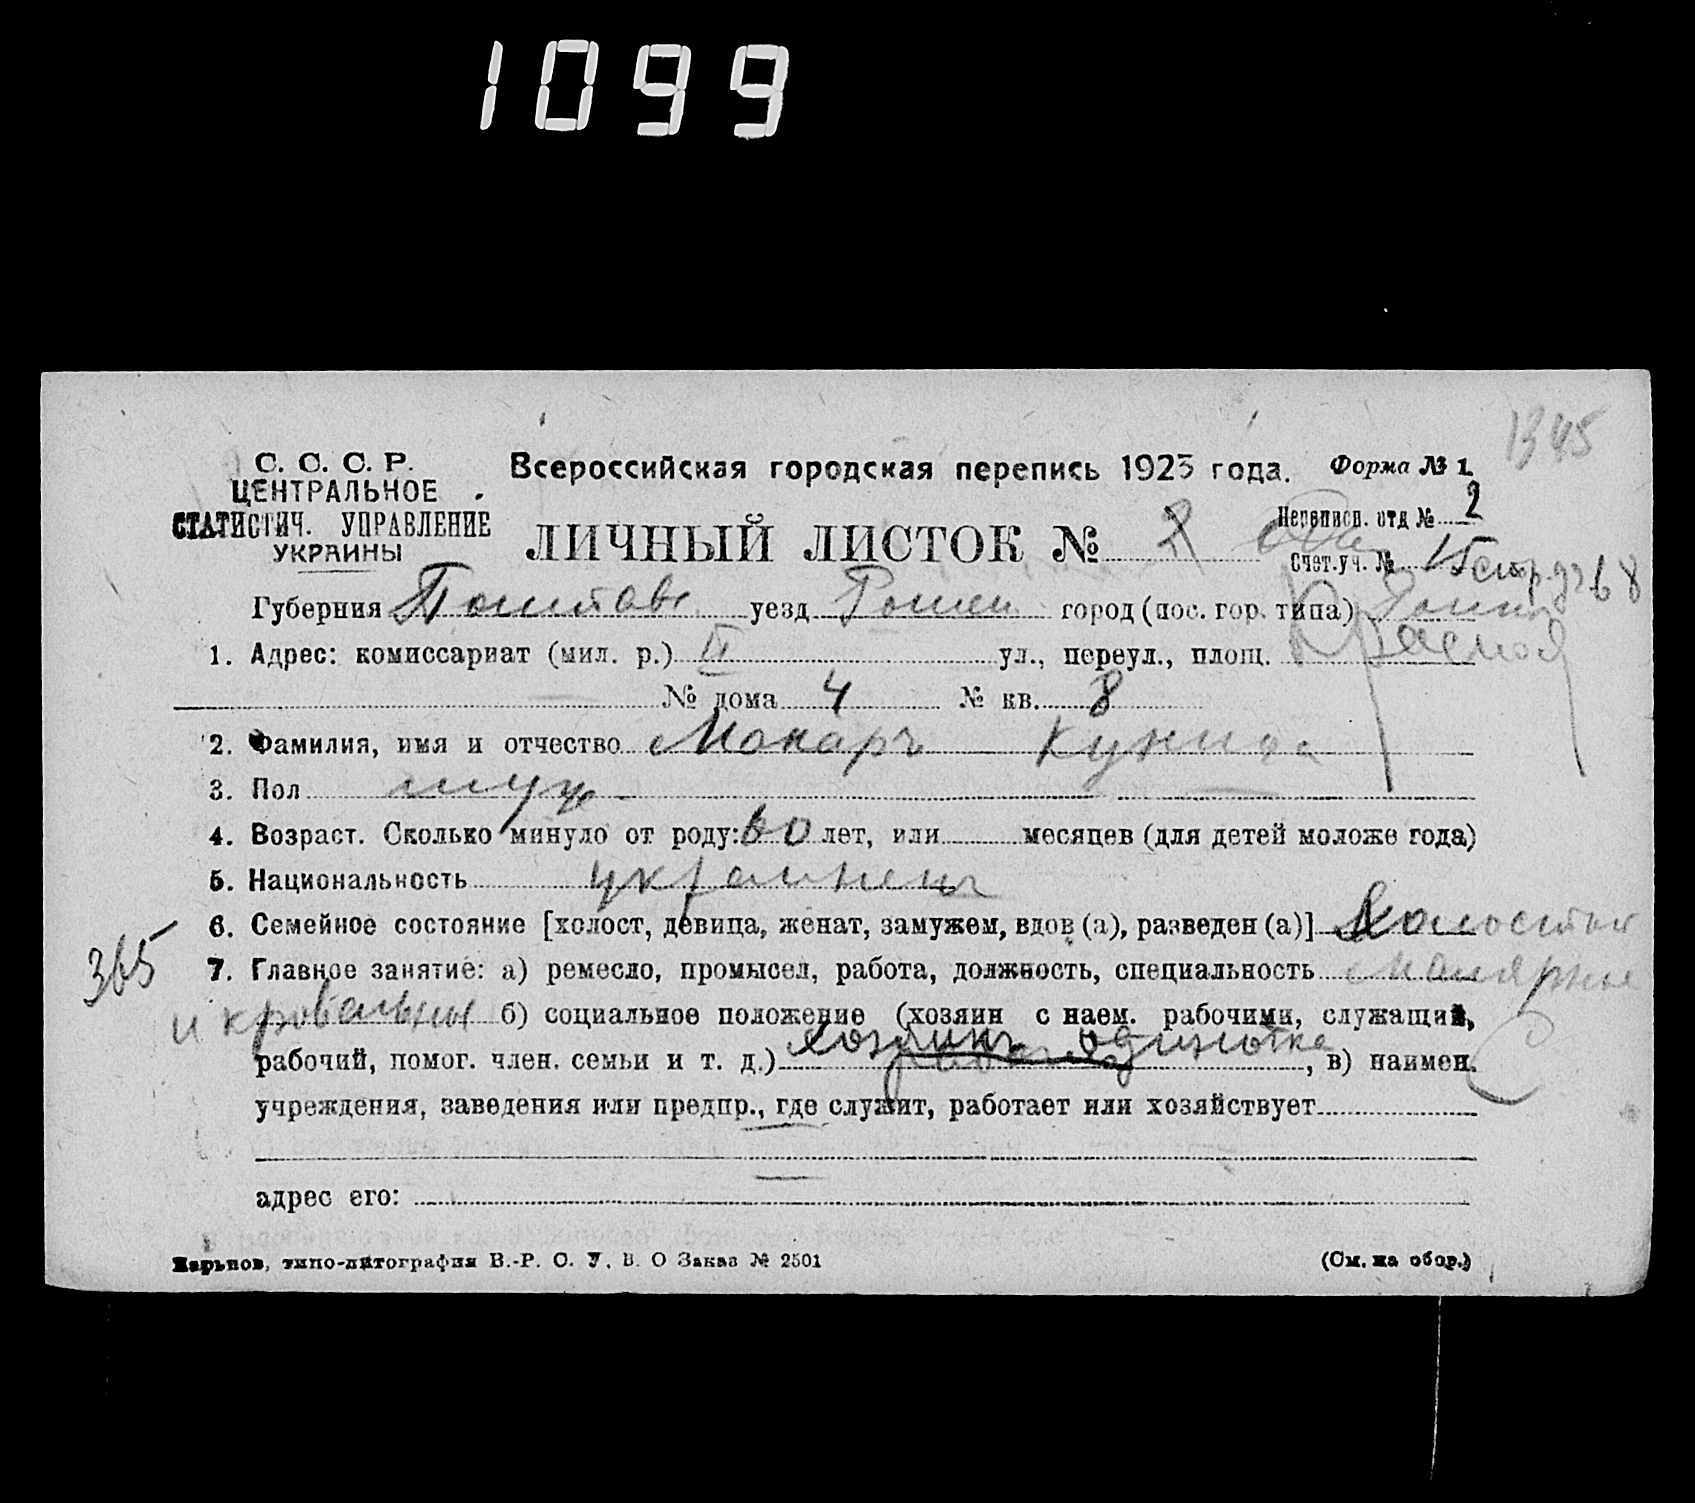 1099
1345
С. С. С. Р.
ЦЕНТРАЛЬНОЕ
СТАТИСТИЧ. УПРАВЛЕНИЕ
УКРАИНЫ
Всероссийская городская перепись 1923 года. Форма № 1.
ЛИЧНЫЙ ЛИСТОК № 2
Переписн. отд № 2
Счет. уч. № 15
Губерния Полтавс уезд Ромен город (пос. гор. типа) Ромны
1. Адрес: комиссариат (мил. р.) II ул., переул., площ. Красной
№ дома 4 № кв. 8
2. Фамилия, имя и отчество Макаръ
3. Пол муж
4. Возраст. Сколько минуло от роду: 60 лет, или месяцев (для детей моложе года)
5. Национальность украинецъ
6. Семейное состояние [холост, девица, женат, замужем, вдов (а), разведен (а)] Холостой
365
7. Главное занятие: а) ремесло, промысел, работа, должность, специальность малярные
и кровельны б) социальное положение (хозяин с наем. рабочими, служащий,
рабочий, помог. член. семьи и т. д.) хозяинъ одиночка, в) наимен.
учреждения, заведения или предпр., где служит, работает или хозяйствует
адрес его:
Харьков, типо-литография В.-Р. С. У. В. О Заказ № 2501 (См. на обор.)